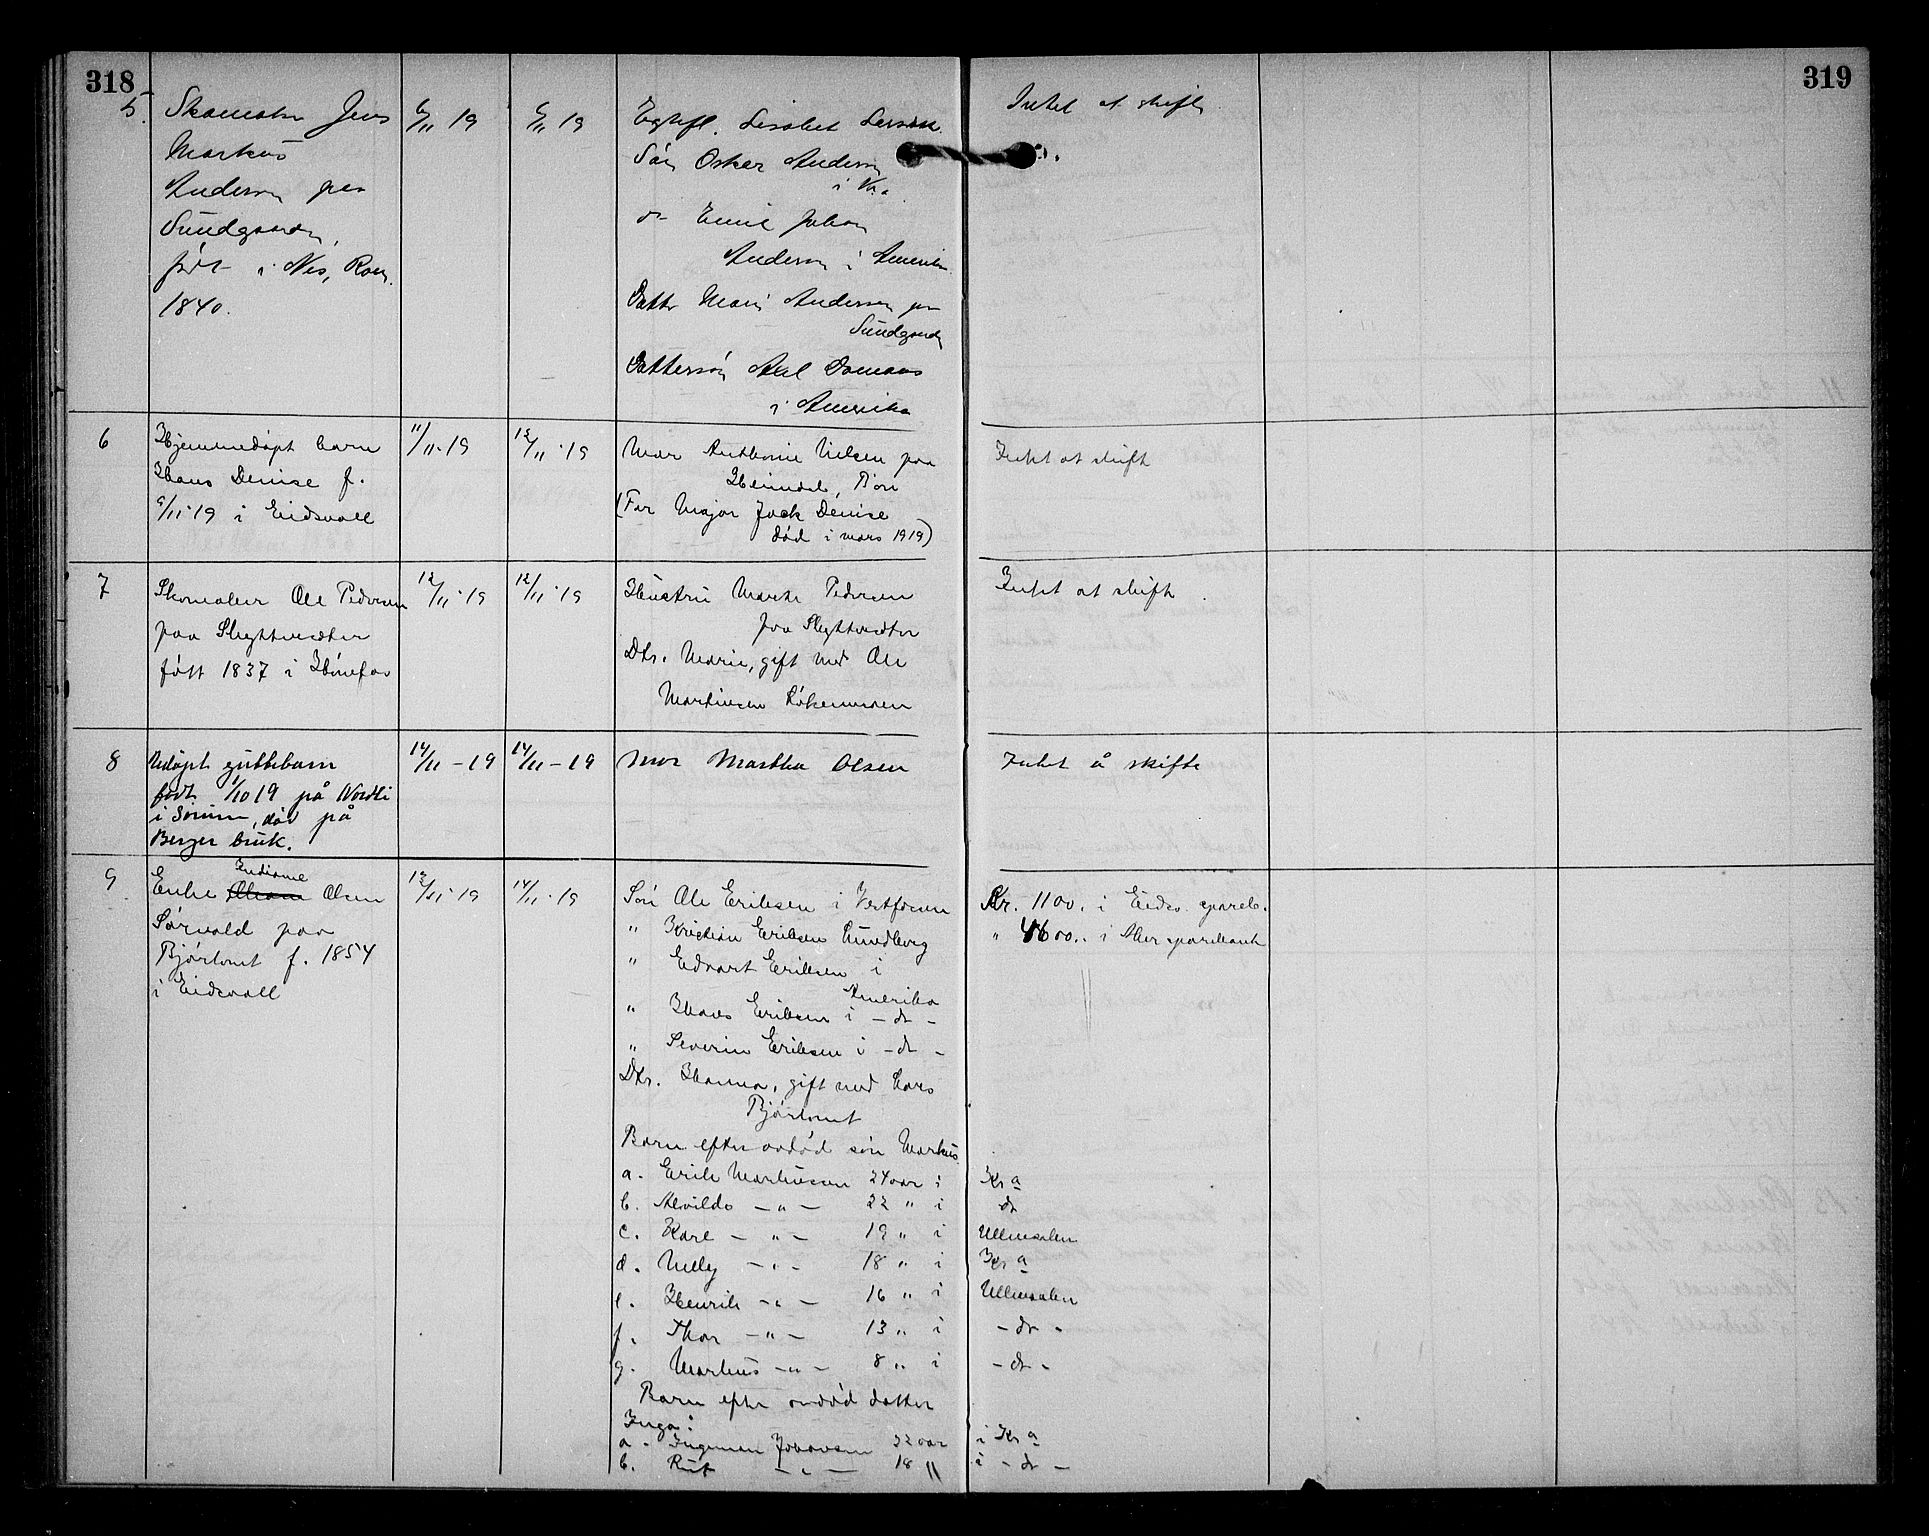 318
319
5.
Skomaker Jens
Markus
Andersen paa
Sundgaarden,
født i Nes, Rom.
1840.
6/11 19
6/11 19
Egtefl. Lisabet Larsen.
Søn Oskar Andersen
i Kr.a
do Emil Johan
Andersen i Amerika.
Datter Marie Andersen paa
Sundgaarden
Dattersøn Axel
i Amerika
Intet at skifte
6
Hjemmedøpt barn
Hans Denise f.
9/11-19 i Eidsvoll
11/11-19
12/11-19
Mor Anthonie Nilsen paa
Heimdal, Bøn
(Far Major Jack Denise
død i mars 1919)
Intet at skifte
7
Skomaker Ole Pedersen
paa Slyttsæter
født 1837 i Hønefos
12/11-19
12/11-19
Hustru Marte Pedersen
paa Slyttsæter
Dtr. Marie, gift med Ole
Martinsen Løkenmoen
Intet at skifte
8
Udøpt guttebarn
født 1/10 19 på Nordli
i Sørum, død på
Berger bruk.
14/11-19
14/11-19
Mor Martha Olsen
Intet å skifte
9
Enke Indiane Olsen
Sørvald paa
Bjørtomt f. 1854
i Eidsvoll
13/11-19
14/11-19
Søn Ole Eriksen i Vestfossen
" Kristian Eriksen Lundberg
" Edvart Eriksen i
Amerika
" Hans Eriksen i - do -
" Severin Eriksen i - do -
Dtr. Hanna, gift med Lars
Bjørtomt
Barn efter avdød søn Markus.
a. Erik Markussen 24 aar i Kr a
b. Alvilde - " - 22 " i do
c. Karl - " - 19 " i Ullensaker
d. Nelly - " - 18 " i Kr a
e. Henrik - " - 16 " i Ullensaker
f. Thor - " - 13 " i - do -
g. Markus - " - 8 " i - do -
Barn efter avdød datter
Inga:
a. Ingeman Johansen 22 aar i Kr a
b. Rut - " - 18 " i - do -
Kr. 1100. i Eidsv. spareb.
" 4600.. i Aker sparebank